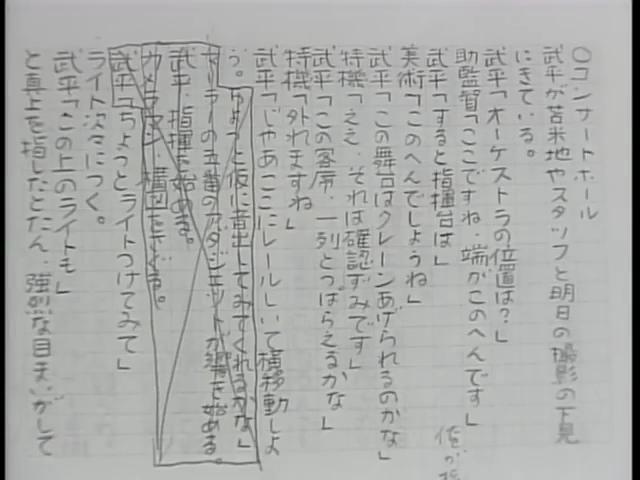 ○コンサートホール
武平が苫米地やスタッフと明日の撮影の下見
にきている。
武平「オーケストラの位置は?」
助監督「ここですね・端がこのへんです」
武平「すると指揮台は」
美術「このへんでしょうね」
武平「この舞台はクレーンあげられるのかな」
特機「ええ、それは確認ずみです」
武平「この客席・一列とっぱらえるかな」
特機「外れますね」
武平「じゃあここにレールしいて横移動しよ
う。ちょっと仮に音出してみてくれるかな」
マーラーの五番のアダジェットが響き始める。
武平・指揮を始める。
カメラマン・構図をさぐる。
武平「ちょっとライトつけてみて」
ライト次々につく。
武平「この上のライトも」
と真上を指したとたん・強烈な目まいがして